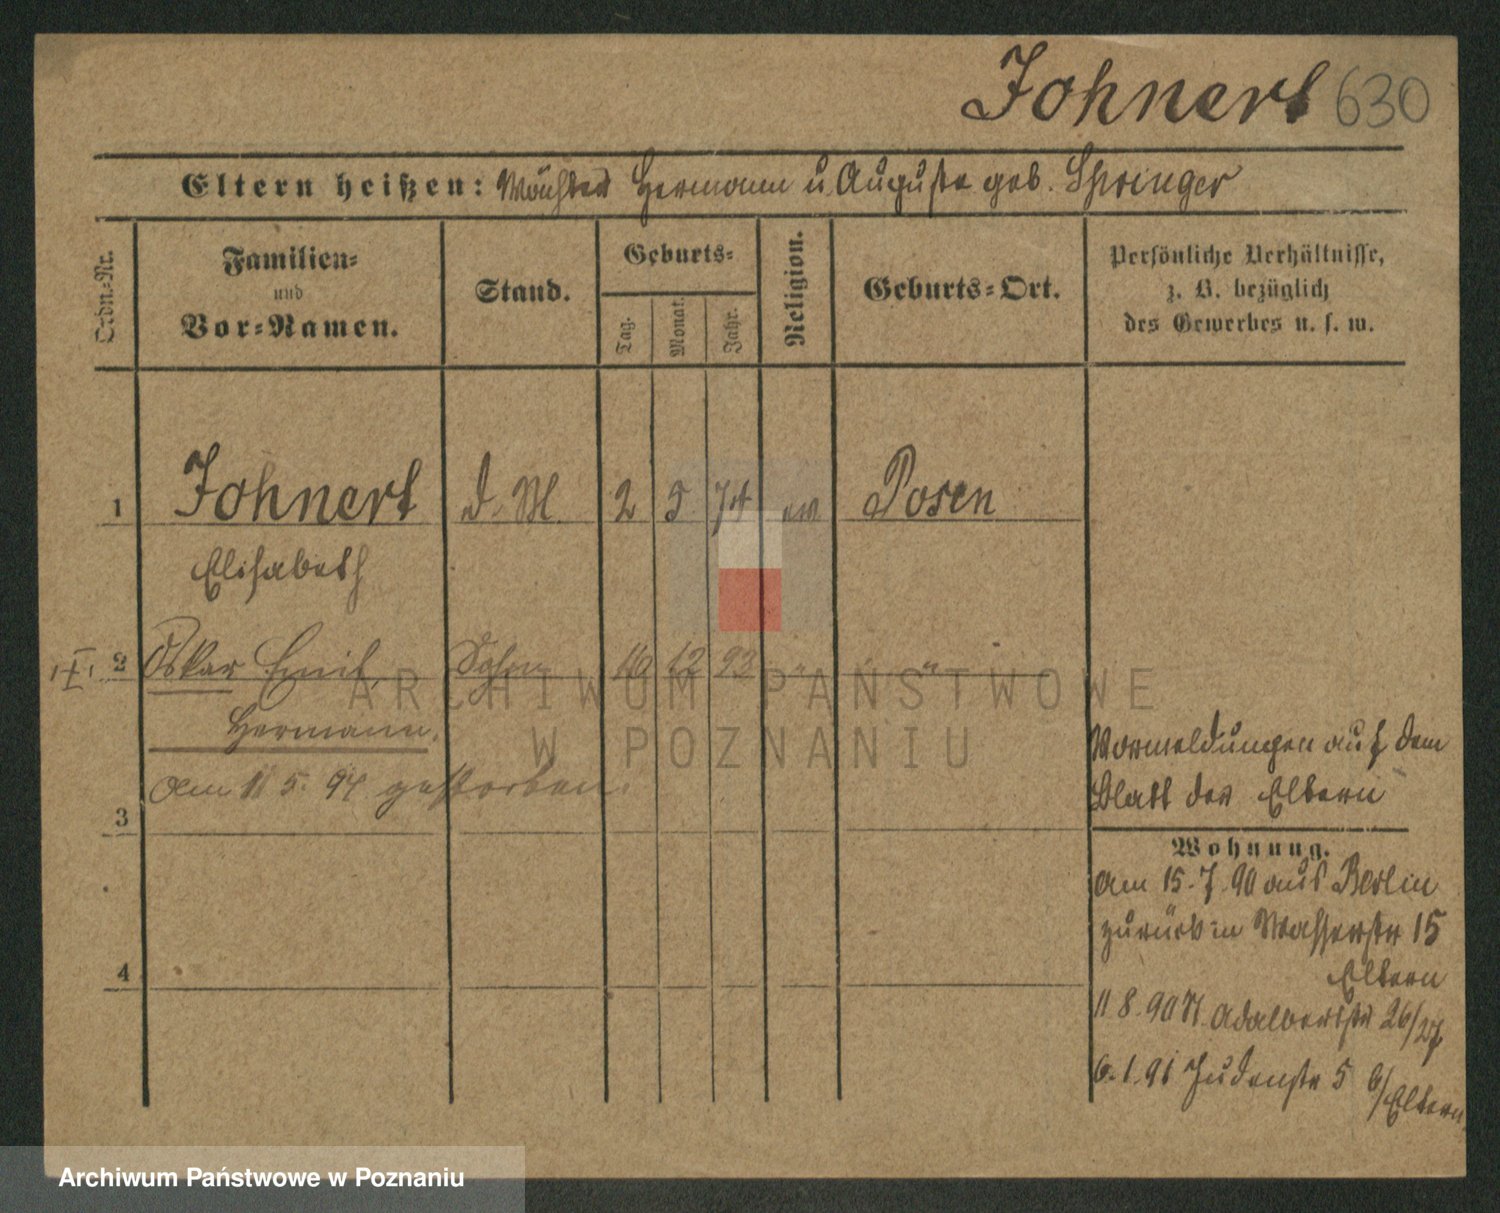 Johnert 630
Eltern heißen: Wächter Hermann u. Auguste geb. Springer
Ordn.-Nr.
Familien-
und
Vor-Namen.
Stand.
Geburts-
Tag.
Monat.
Jahr.
Religion.
Geburts-Ort.
Persönliche Verhältnisse,
z. B. bezüglich
des Gewerbes u. s. w.
1 Johnert d. M. 2 5 74 ev Posen
Elisabeth
2 Oskar Emil Sohn 10 12 93 " "
Hermann.
am 11 5. 94 gestorben.
3
4
Vormeldungen auf dem
Blatt der Eltern
Wohnung.
am 15.7.90 aus Berlin
zurück in Wasserstr 15
Eltern
11 8.90 Adalbertstr 26/27
6.1.91 Judenstr 5 b/Eltern
ARCHIWUM PAŃSTWOWE
W POZNANIU
Archiwum Państwowe w Poznaniu